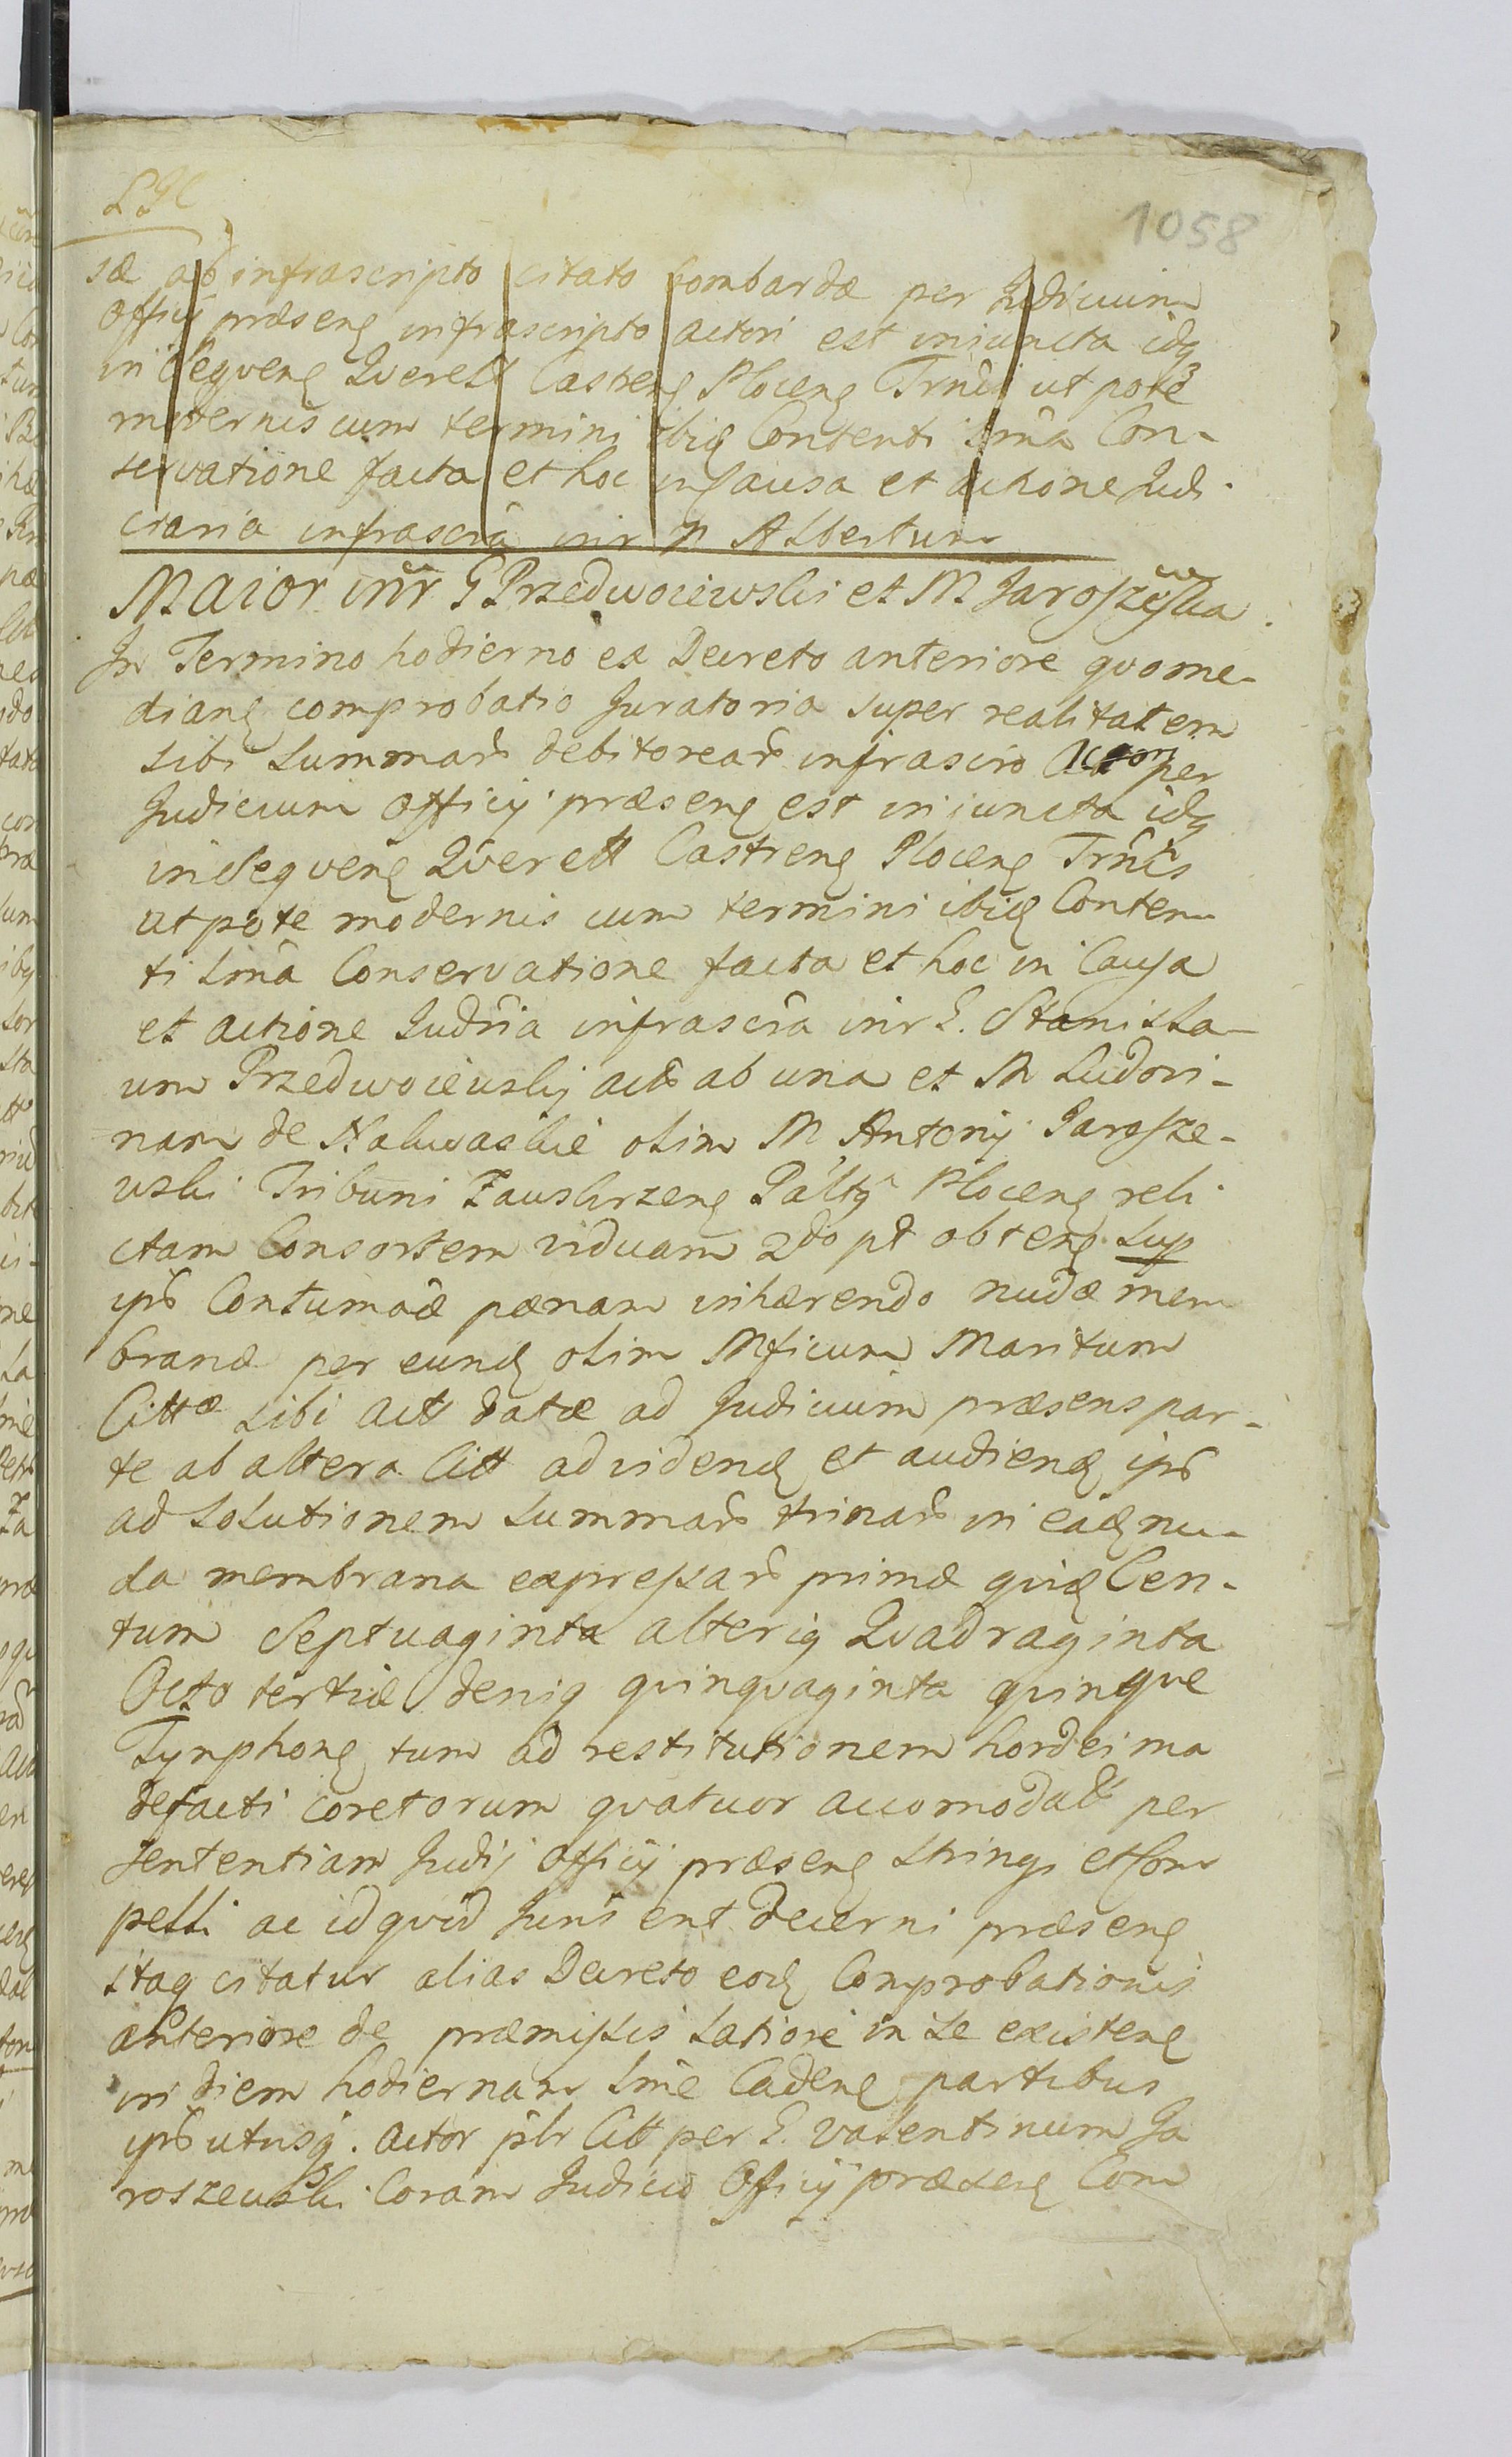 1058
sæ ab infrascripto citato bombardæ per Judicium
Officij præsenѕ infrascripto actori est iniuncta idq
in Seqvenѕ Qverell Castrenѕ Plocenѕ Trnis ut pote
modernis cum termini ibid Contenti sma Con-
servatione facta et hoc in Causa et actione Judi-
ciaria infrascra inr N Albertum
Maior inr G Przedwoiewski et M Jaroszewska
In Termino hodierno ex Decreto anteriore qvo me-
dianѕ comprobatio Juratoria super realitatem
sibi Summarũ debitorearũ infrascro Actori per
Judicium Officij præsenѕ est iniuncta idq
in Seqvenѕ Qverell Castrenѕ Plocenѕ Trnis
utpote modernis cum termini ibid Conten-
ti sma Conservatione facta et hoc in Causa
et actione Judria infrascra inr G. Stanisla-
um Przedwoiewski act ab una et M Ludovi-
nam de Nalwaskie olim M Antonij Jarosze-
wski Tribuni Zawskrzenѕ Palty Plocenѕ reli-
ctam Consortem viduam 2do pt obtenѕ Sup
ips Contumaciæ pænam inhærendo nudæ mem
branæ per eund olim Mficum Maritum
Cittæ sibi Act datæ ad Judicium præsens par-
te ab altera Citt ad videnđ et audienđ ips
ad Solutionem Summarũ trinarũ in eađ nu-
da membrana expressarũ primæ qvid Cen-
tum Septuaginta alteriq Qvadraginta
Octo tertiæ deniq qvinqvaginta qvinqve
Tynphonѕ tum ad restitutionem hordei ma
defacti coretorum qvatuor accomodat per
sententiam Judij Officij præsenѕ Stringi et Com
pelli ac id qvid Juris erit decerni præsenѕ
itaq citatur alias Decreto eođ Comprobationis
anteriore de præmissis latiore in se existenѕ
in diem hodiernam sme Cadenѕ partibus
ips utrisq. Actor plr Citt per G. Valentinum Ja
roszewski Coram Judicio Officij præsenѕ Com